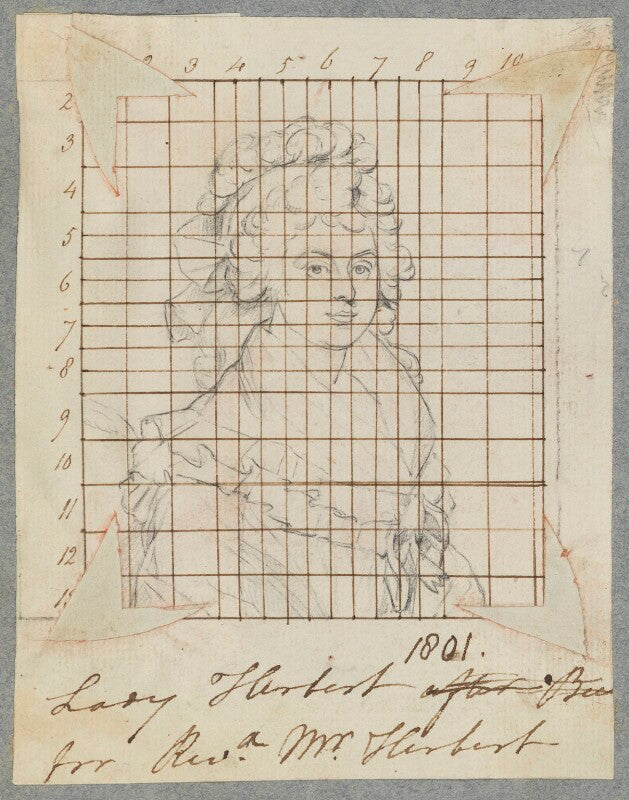 2 3 4 5 6 7 8 9 10
2
3
4
5
6
7
8
9
10
11
12
1801.
Lady Herbert after
for Revd. Mr. Herbert